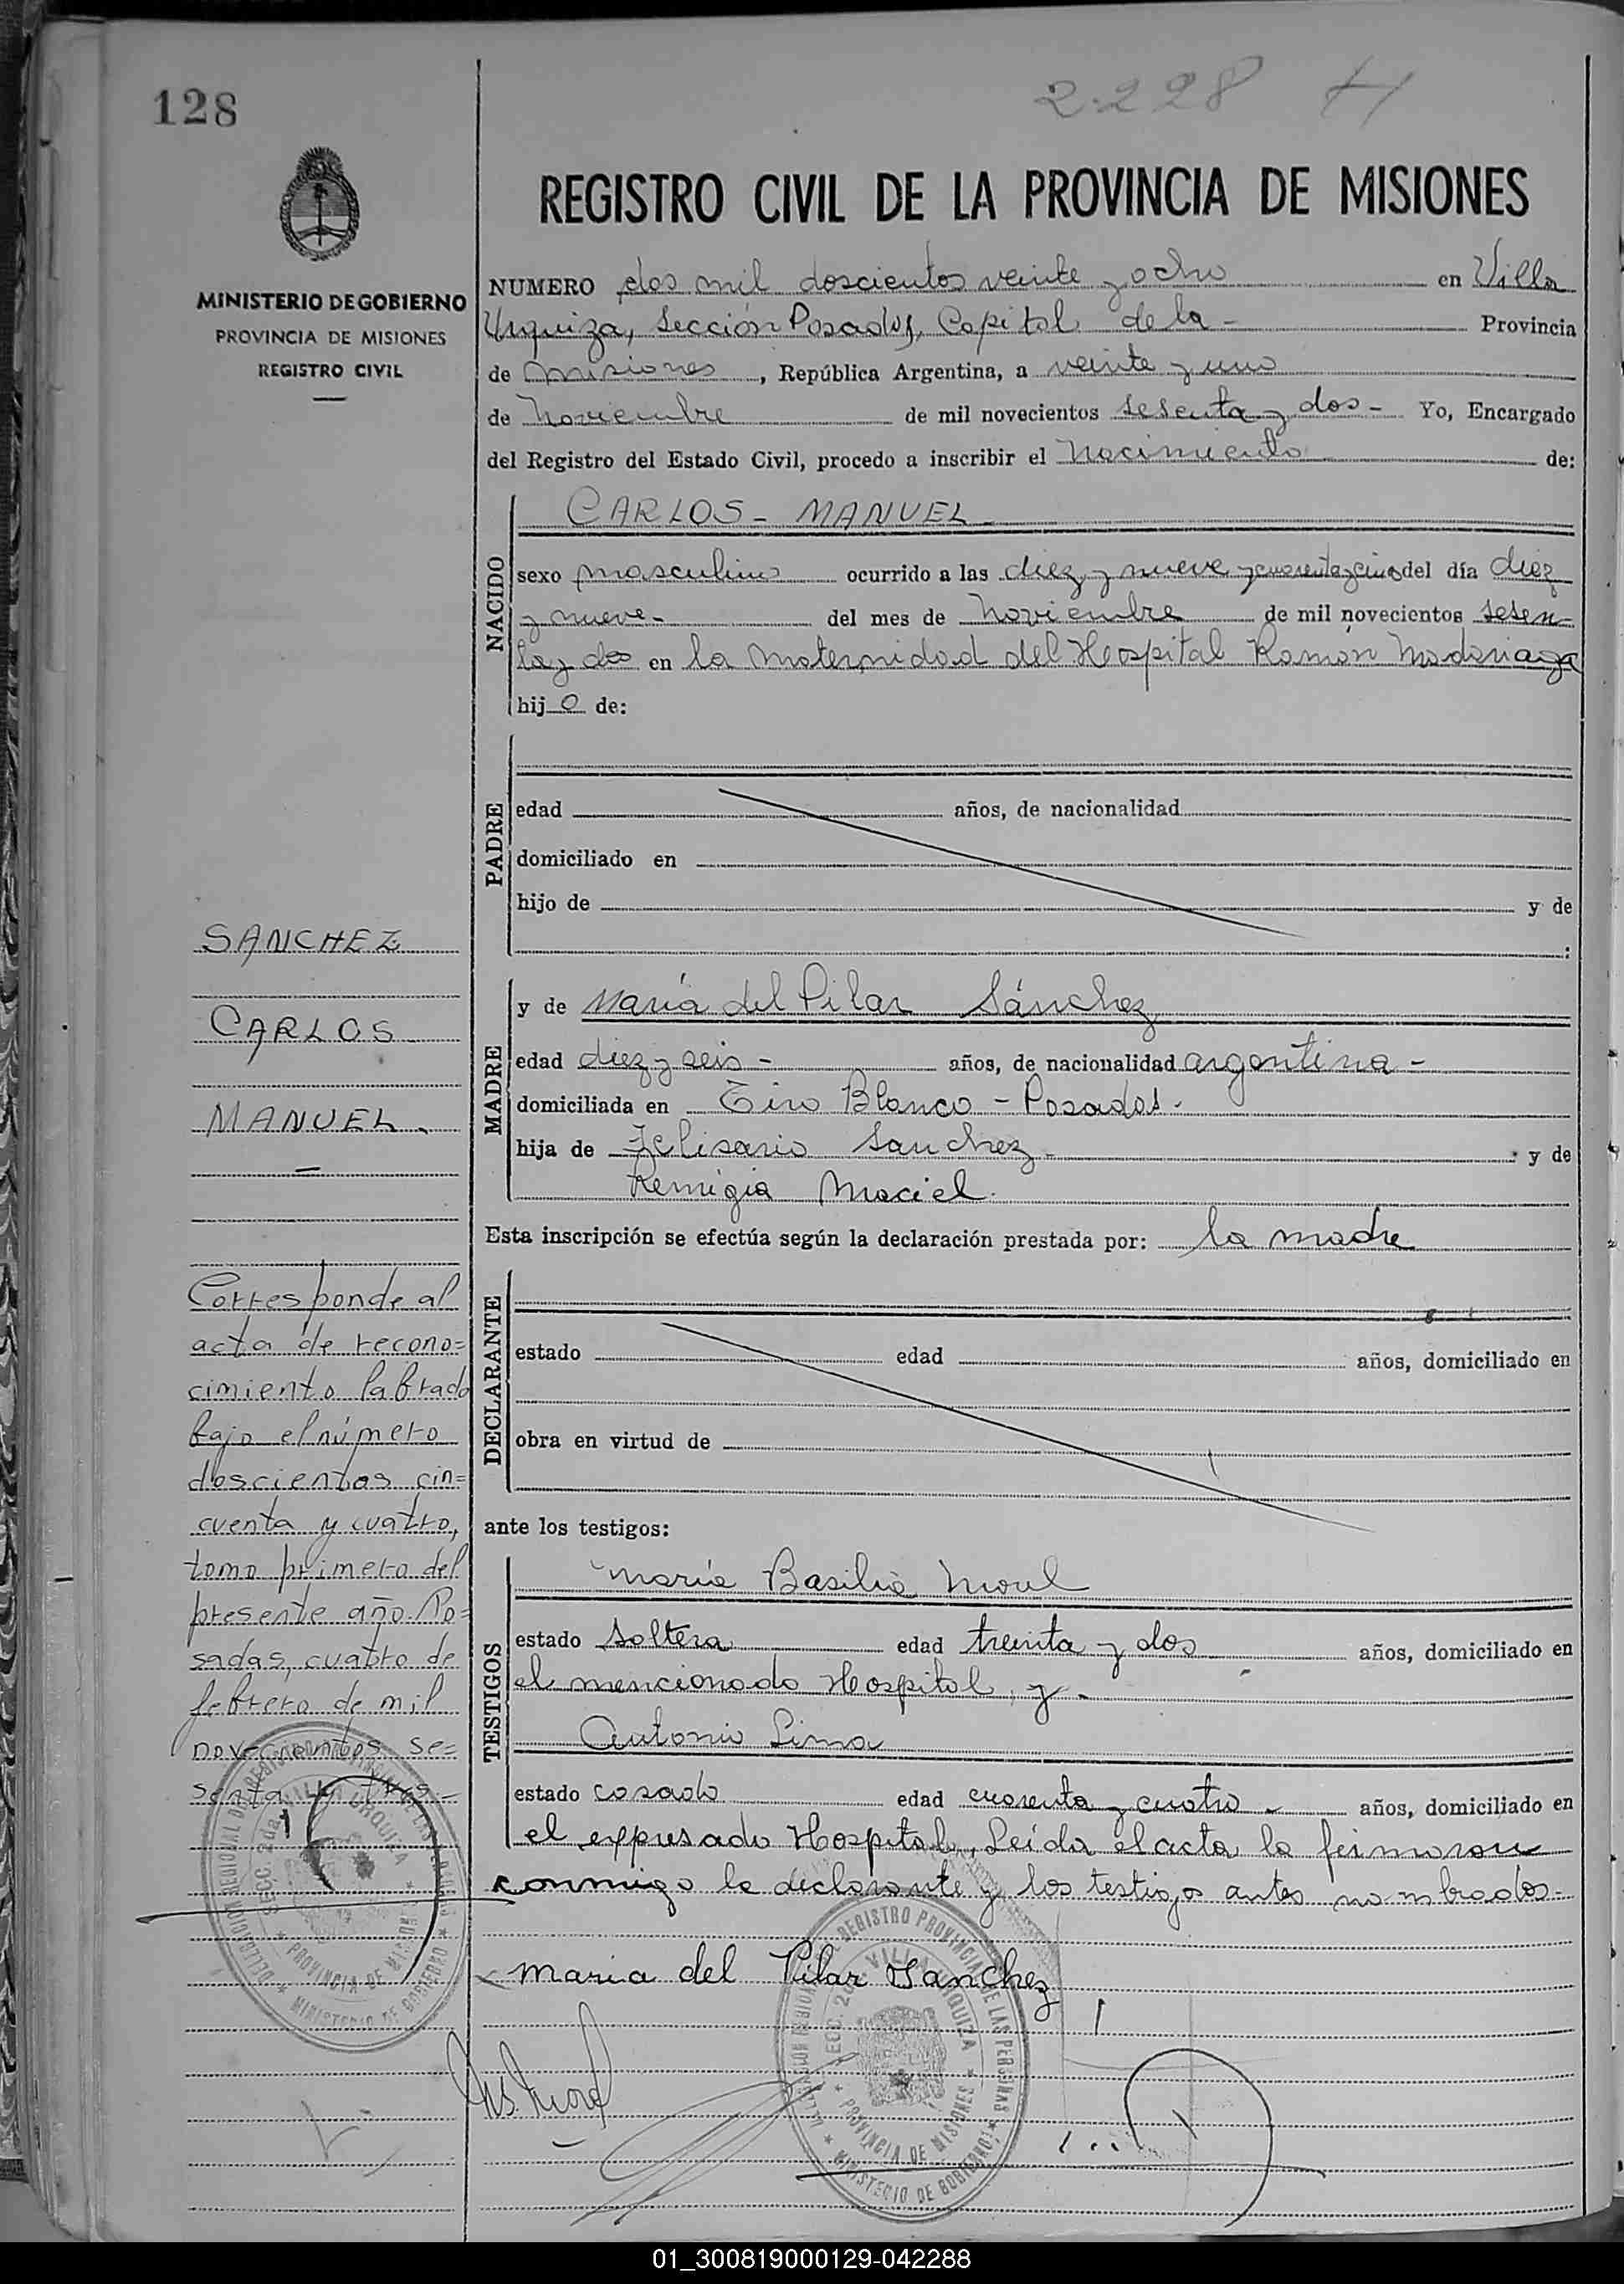 128
2.228 H
REGISTRO CIVIL DE LA PROVINCIA DE MISIONES
MINISTERIO DE GOBIERNO
PROVINCIA DE MISIONES
REGISTRO CIVIL
NUMERO dos mil doscientos veinte y ocho en Villa
Urquiza, Sección Posadas, Capital de la - Provincia
de Misiones, República Argentina, a veinte y uno
de Noviembre de mil novecientos sesenta y dos - Yo, Encargado
del Registro del Estado Civil, procedo a inscribir el Nacimiento de:
NACIDO
CARLOS - MANUEL
sexo masculino ocurrido a las diez y nueve y cuarenta y cinco del día diez
y nueve - del mes de Noviembre de mil novecientos sesen
ta y dos en la Maternidad del Hospital Ramón Madariaga
hijo de:
PADRE
edad años, de nacionalidad
domiciliado en
hijo de y de
:
MADRE
y de María del Pilar Sánchez
edad diez y seis - años, de nacionalidad argentina -
domiciliada en Tiro Blanco - Posadas.
hija de Sanchez - y de
Remigia Maciel.
Esta inscripción se efectúa según la declaración prestada por: la madre
DECLARANTE
estado edad años, domiciliado en
obra en virtud de
ante los testigos:
TESTIGOS
María Basilia
estado soltera edad treinta y dos años, domiciliado en
el mencionado Hospital, y -
Antonio Lima
estado casado edad cuarenta y cuatro - años, domiciliado en
el expresado Hospital, Leída el acta la firmaron
conmigo la declarante y los testigos antes nombrados -
maria del Pilar Sanchez
SANCHEZ
CARLOS
MANUEL -
Corresponde al
acta de recono=
cimiento labrado
bajo el número
doscientos cin=
cuenta y cuatro,
tomo primero del
presente año. Po=
sadas, cuatro de
febrero de mil
novecientos se=
senta y tres -
SECC. 2da. VILLA URQUIZA
PROVINCIA DE MISIONES
MINISTERIO DE GOBIERNO
REGISTRO PROVINCIAL DE LAS PERSONAS
SECC. 2da. VILLA URQUIZA
PROVINCIA DE MISIONES
MINISTERIO DE GOBIERNO
01_300819000129-042288